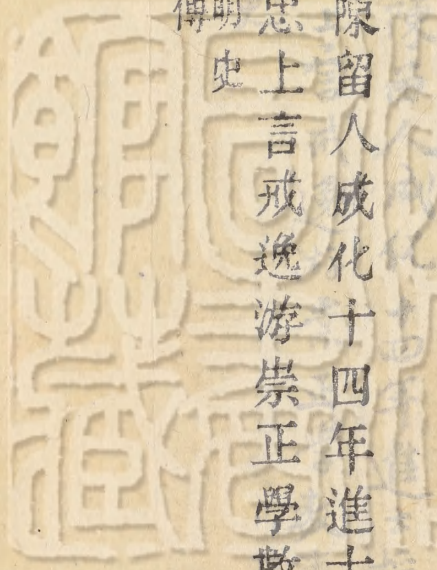 陳留人成化十四年進
忠上言戒逸游崇正學
明史
傳